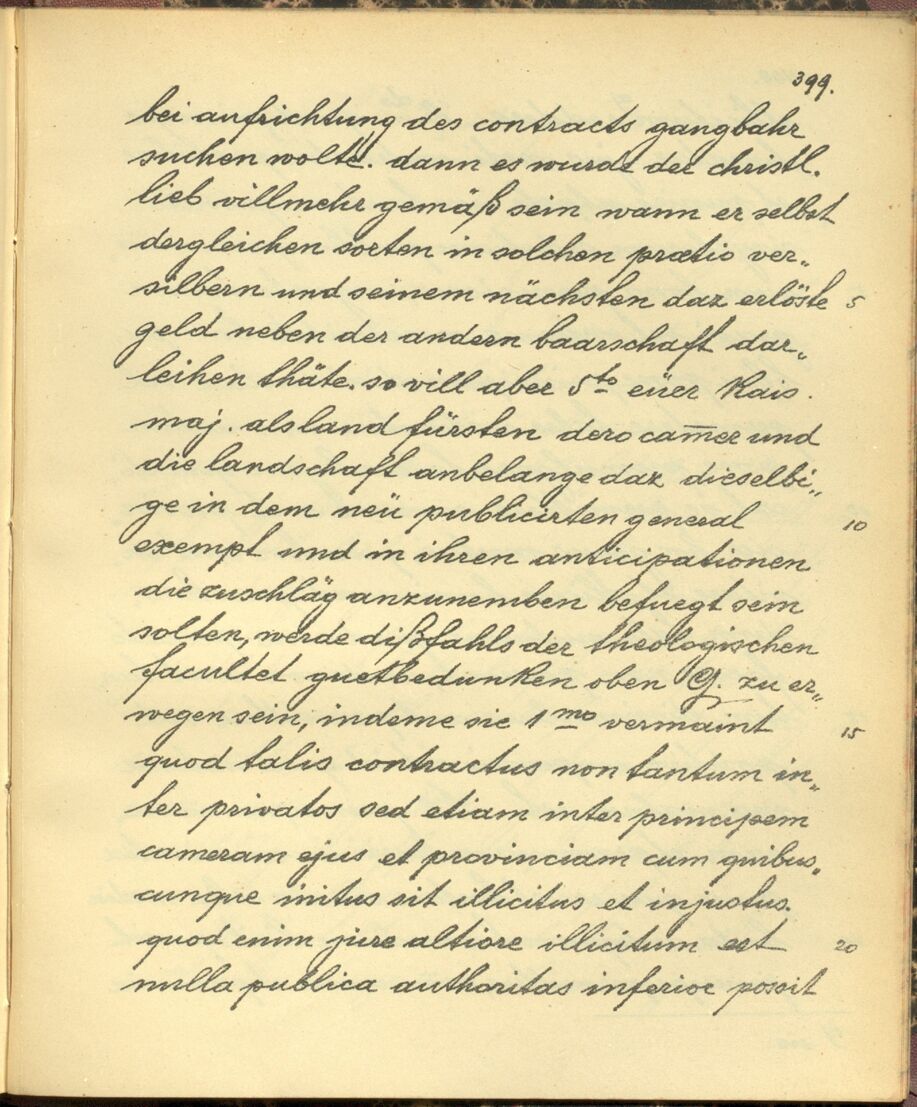 399.
bei aufrichtung des contracts gangbahr
suchen wolte. dann es wurde der christl.
lieb villmehr gemäß sein wann er selbst
dergleichen sorten in solchen prætio ver„
silbern und seinem nächsten daz erlöste 5
geld neben der andern baarschaft dar„
leihen thäte. so vill aber 5to eüer Kais.
maj. als land fürsten dero cam̅er und
die landschaft anbelange daz dieselbi„
ge in dem neü publicirten general 10
exempt und in ihren anticipationen
die zuschläg anzunemben befuegt sein
solten, werde dißfahls der theologischen
facultet guetbedunken oben G. zu er„
wegen sein, indeme sie 1mo vermaint 15
quod talis contractus non tantum in„
ter privatos sed etiam inter principem
cameram ejus et provinciam cum quibus„
cunque initus sit illicitus et injustus.
quod enim jure altiore illicitum est 20
nulla publica authoritas inferior possit